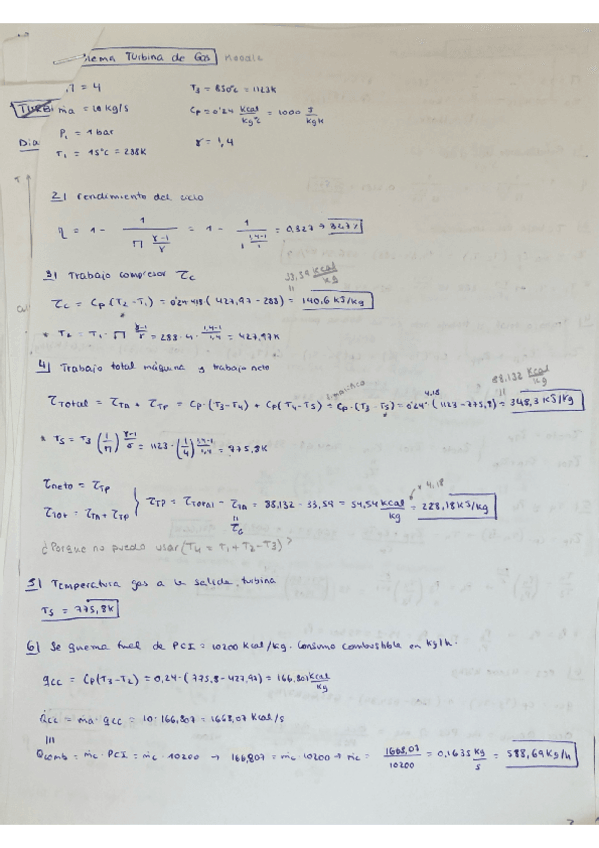 lema Turbina de Gas
Π = 4 T₃ = 850°C = 1123K
ṁa = 10 kg/s Cp = 0'24 Kcal/Kg°C = 1000 J/kgK
P₁ = 1 bar γ = 1,4
Dia
T₁ = 15°C = 288K
2) rendimiento del ciclo
η = 1 - 1/Π^(γ-1/γ) = 1 - 1/4^(1,4-1/1,4) = 0,327 → 32,7%
3) Trabajo compresor τc
33,59 Kcal/kg
τc = Cp(T₂-T₁) = 0'24·4,18(427,97-288) = 140,6 KJ/kg
* T₂ = T₁·Π^(γ-1/γ) = 288·4^(1,4-1/1,4) = 427,97K
4) Trabajo total máquina y trabajo neto
88,132 Kcal/kg
τTotal = τTA + τTP = Cp·(T₃-T₄) + Cp(T₄-T₅) = Cp·(T₃-T₅) = 0'24·4,18·(1123-775,8) = 348,3 KJ/kg
* T₅ = T₃(1/Π)^(γ-1/γ) = 1123·(1/4)^(1,4-1/1,4) = 775,8K
τneto = τTP
τTot = τTA + τTP } τTP = τTotal - τTA = 88,132 - 33,59 = 54,54 Kcal/kg = 228,18 KJ/kg
* 4,18
τc
¿Porque no puedo usar (T₄ = T₁+T₂-T₃)?
5) Temperatura gas a la salida turbina
T₅ = 775,8K
6) Se quema fuel de PCI = 10200 Kcal/kg. Consumo combustible en kg/h.
qcc = Cp(T₃-T₂) = 0,24·(775,8-427,97) = 166,807 Kcal/kg
Q̇cc = ṁa·qcc = 10·166,807 = 1668,07 Kcal/s
Q̇comb = ṁc·PCI = ṁc·10200 → 166,807 = ṁc 10200 → ṁc = 1668,07/10200 = 0,1635 kg/s = 588,69 Kg/h